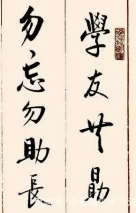 學友共勗
勿忘勿助長